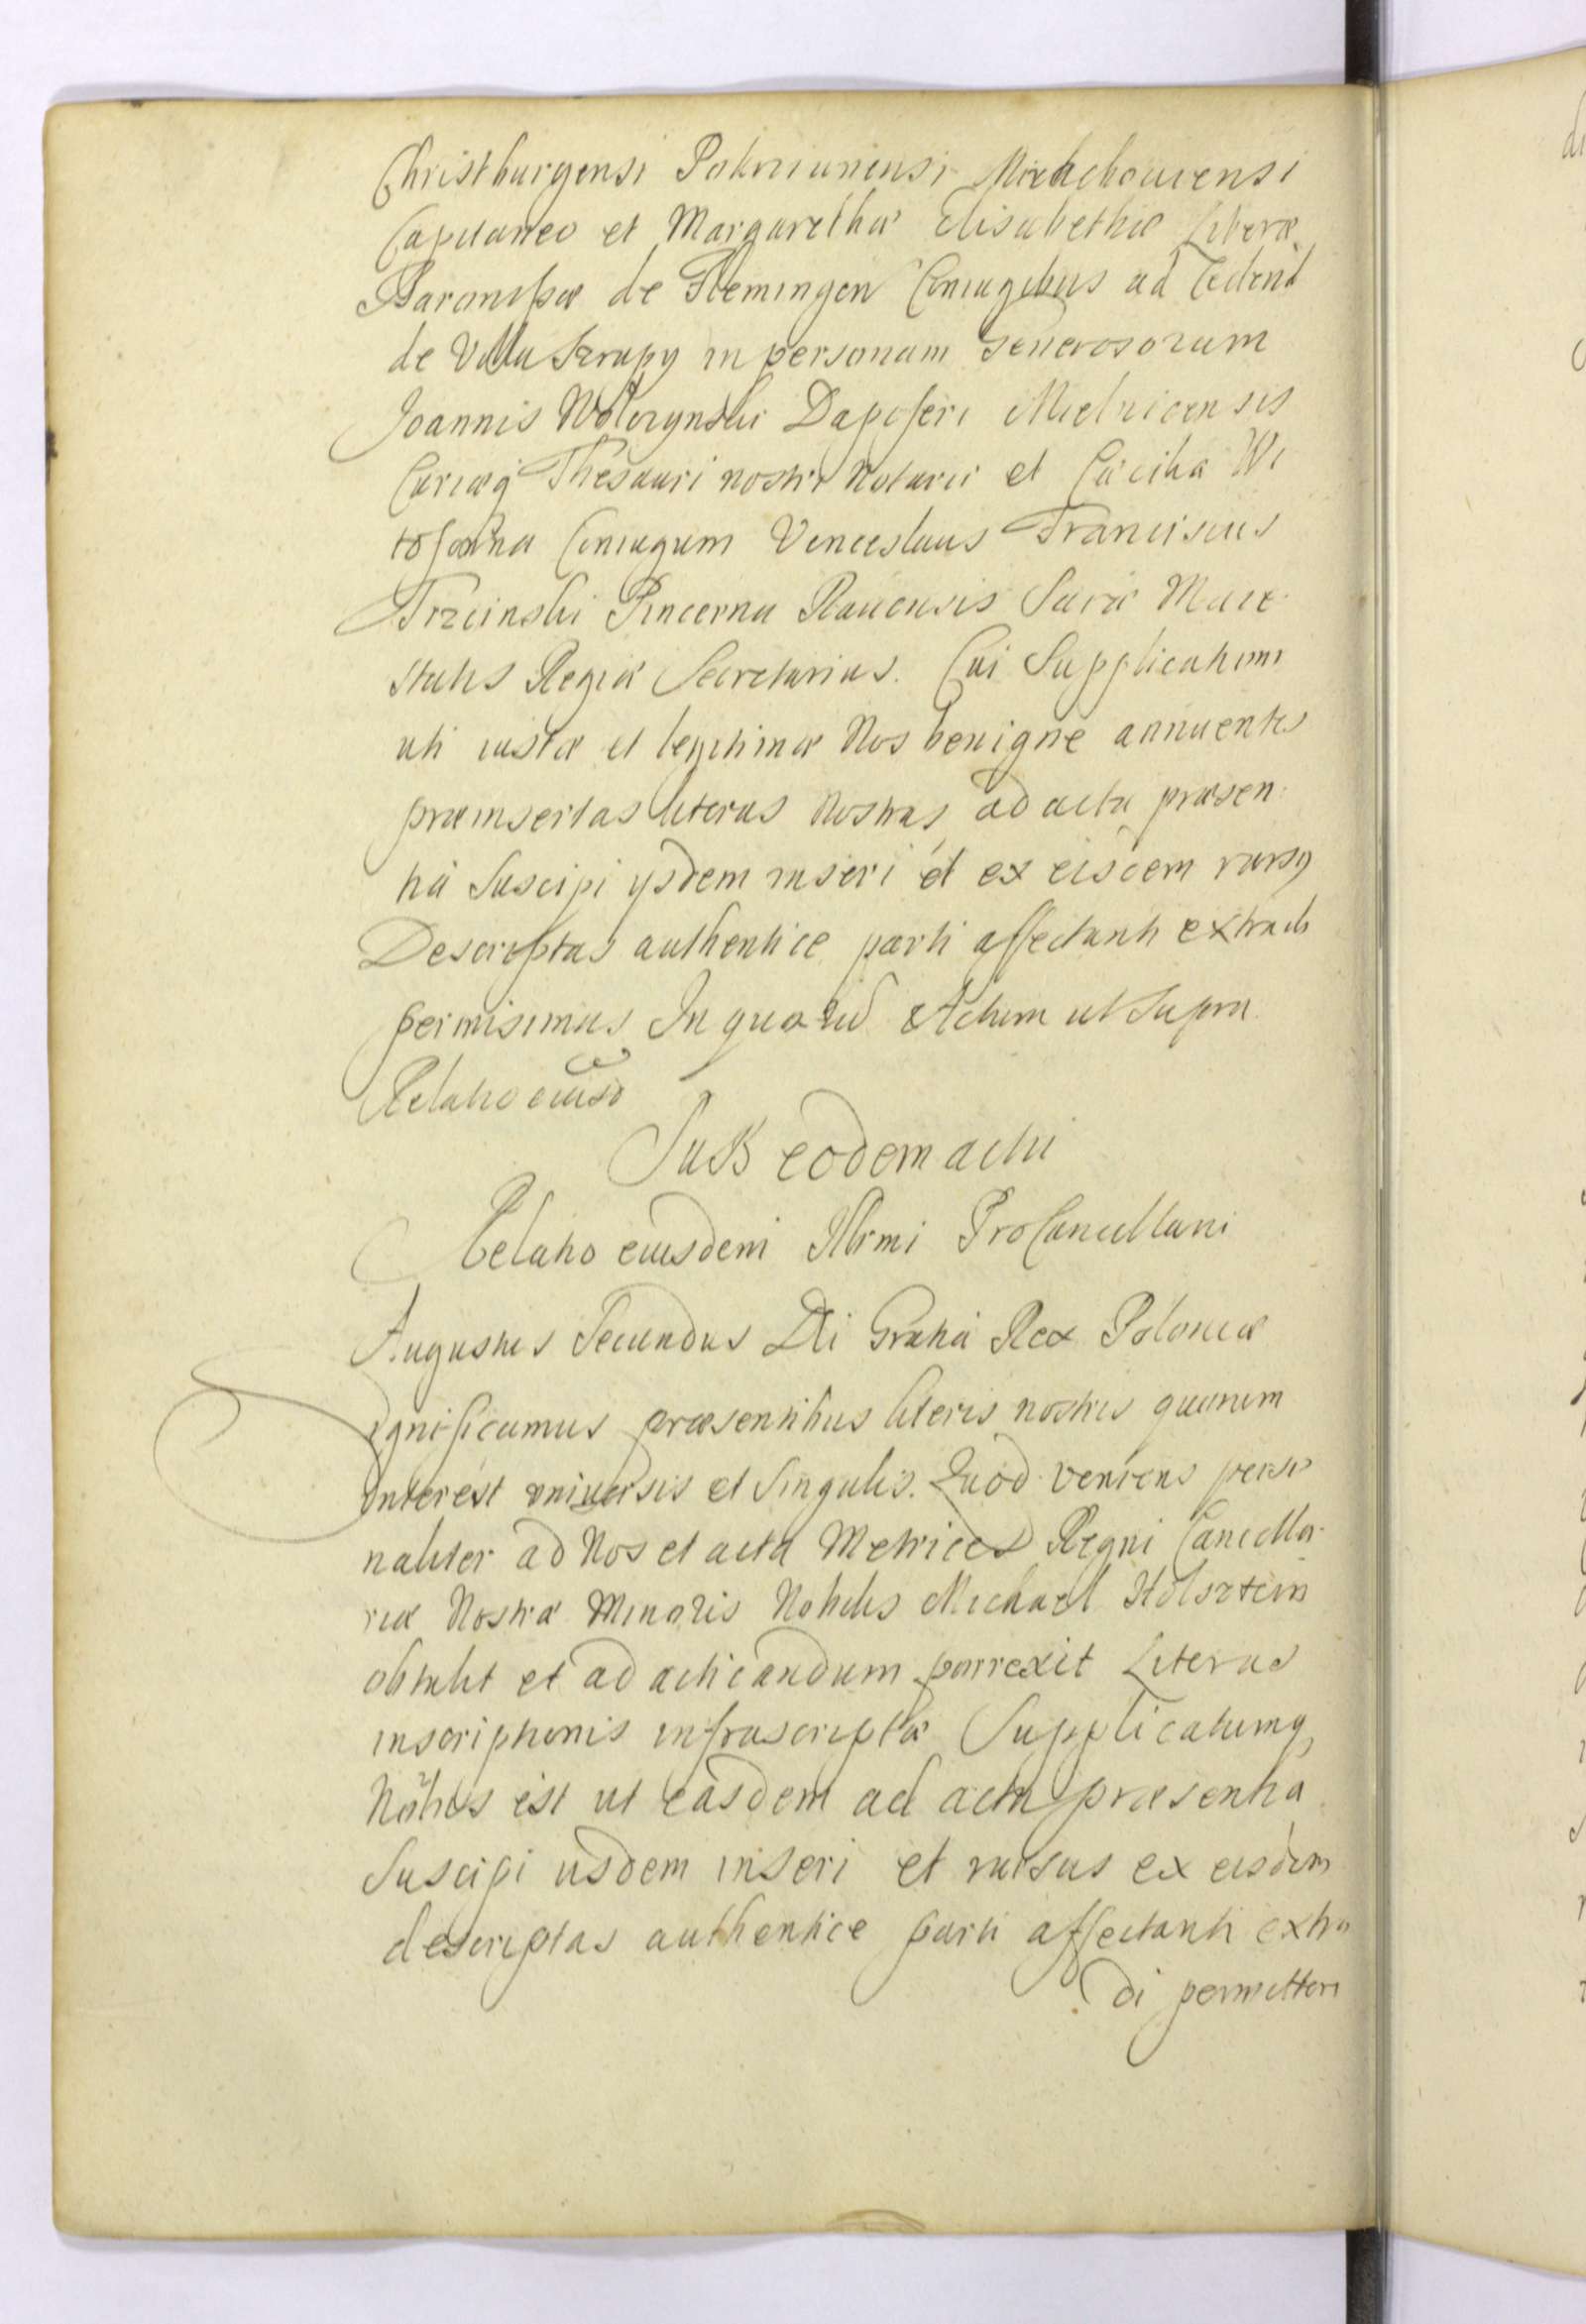 Christburgensi Pokrziunensi Mirachouiensi
Capitaneo et Margarethæ Elisabethæ Liberæ
Baronissæ de Flemingen Coniugibus ad Cedend
de Villa Szropy in personam Generosorum
Joannis Wolczynski Dapiferi Mielnicensis
Curiæq Thesauri nostri Notarii et Cæcilia Wi
tosławna Coniugum Venceslaus Franciscus
Trzcinski Pincerna Rauensis Sacræ Maie
statis Regiæ Secretarius. Cui Supplicationi
uti iustæ et legitimæ Nos benigne annuentes
præinsertas literas Nostras ad acta præsen
tia Suscipi ijsdem inseri et ex eisdem rursq
Descriptas authentice parti affectanti extradi
permisimus In quorũ Actum ut Supra
Relatio eiusd
Sub eodem actu
Relatio eiusdem Illrmi ProCancellarii
Augustus Secundus Dei Gratia Rex Poloniæ
Significamus præsentibus literis nostris quorum
interest vniuersis et Singulis. Quod veniens perso
naliter ad Nos et acta Metrices Regni Cancella
riæ Nostræ Minoris Nobilis Michael Holsztein
obtulit et ad acticandum porrexit Literas
inscriptionis infrascriptæ Supplicatumq
Nobis est ut easdem ad acta præsentia
Suscipi iisdem inseri et rursus ex eisdem
descriptas authentice parti affectanti extra
di permittere